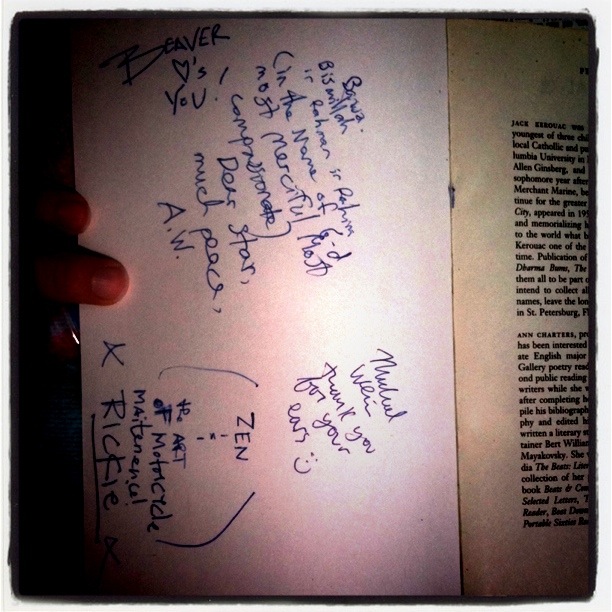 BEAVER
♡'s
YOU!
Bawa.
Bismillah
ir Rahman ir Rahim
(in the Name of G-d
most Merciful Most
compassionate)
Dear Star,
much peace,
A.W.
Michael
Weir
thank you
for your
ears :)
ZEN
- x -
the ART
of Motorcycle
Maitenence!
x RICKIE x
JACK KEROUAC was
youngest of three chil
local Catholic and pu
lumbia University in
Allen Ginsberg, and
sophomore year after
Merchant Marine, be
tinue for the greater
City, appeared in 195
and memorializing h
to the world what b
Kerouac one of the
time. Publication of
Dharma Bums, The
them all to be part o
intend to collect all
names, leave the lon
in St. Petersburg, F
ANN CHARTERS, pr
has been interested
ate English major
Gallery poetry read
ond public reading
writers while she w
after completing h
pile his bibliograph
phy and edited h
written a literary st
tainer Bert Willian
Mayakovsky. She
dia The Beats: Liter
collection of her
book Beats & Com
Selected Letters, T
Reader, Beat Down
Portable Sixties Rea